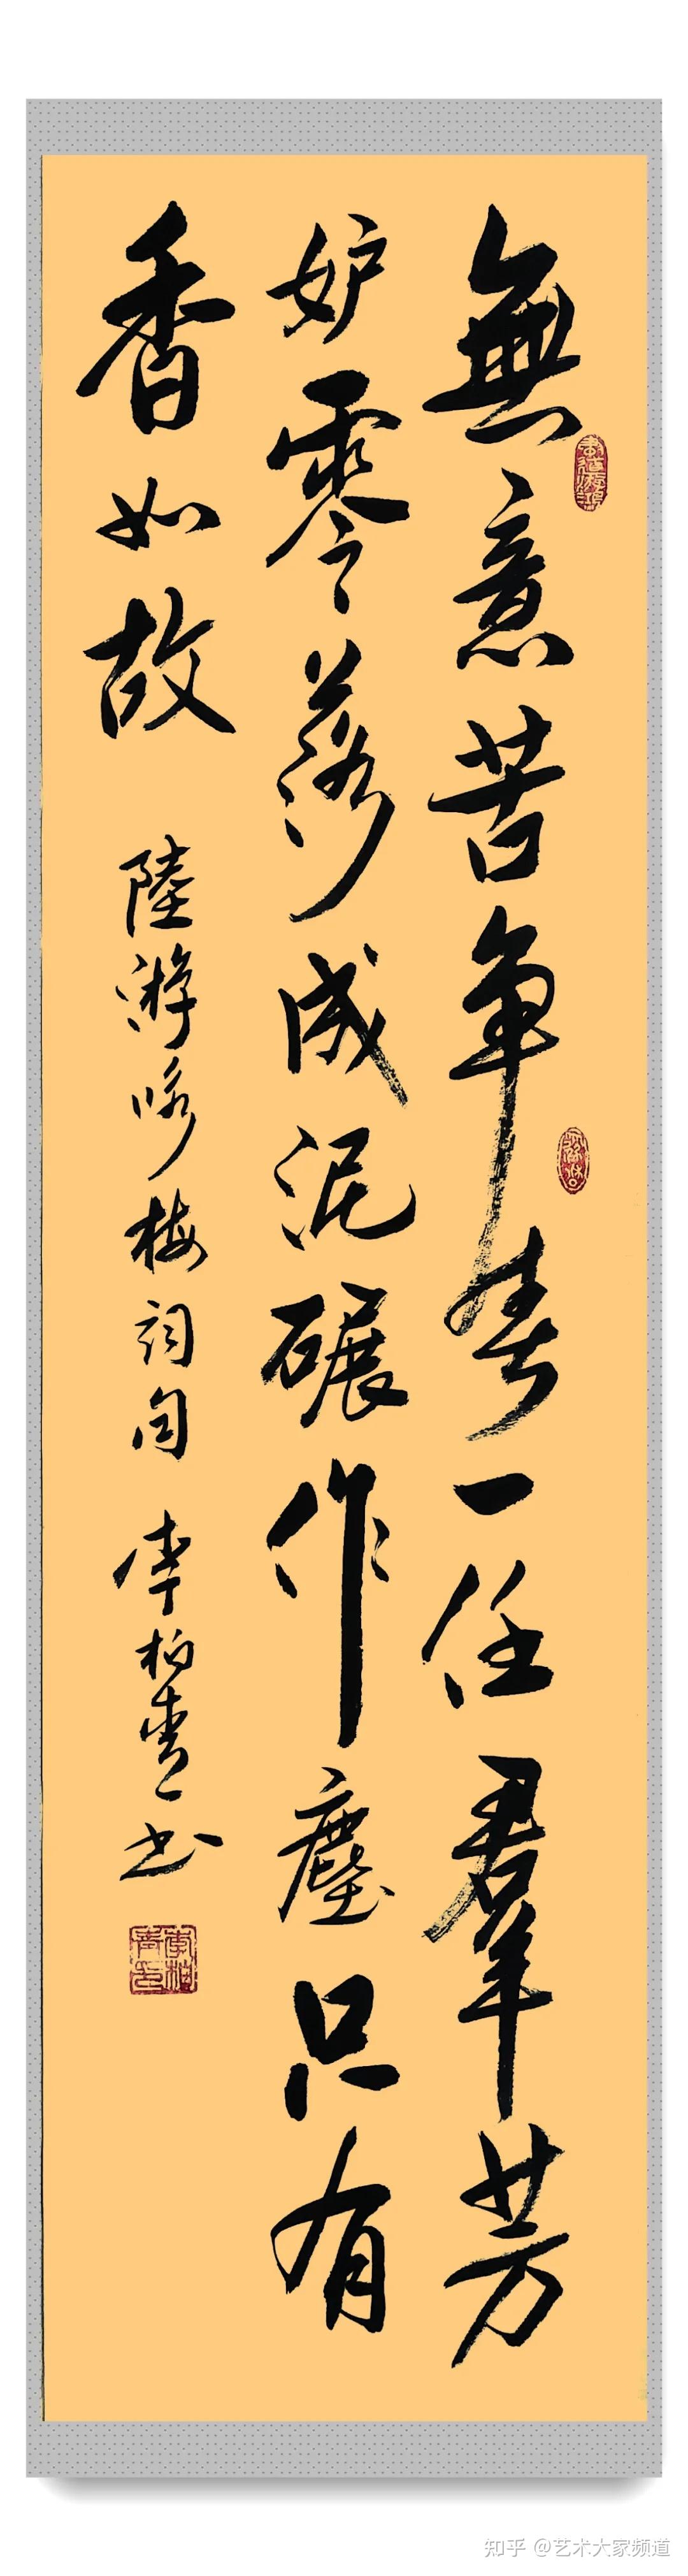 無意苦争春一任羣芳
妒零落成泥碾作塵只有
香如故
陸游咏梅詞句 李柏青書
李柏青印
知乎 @艺术大家频道